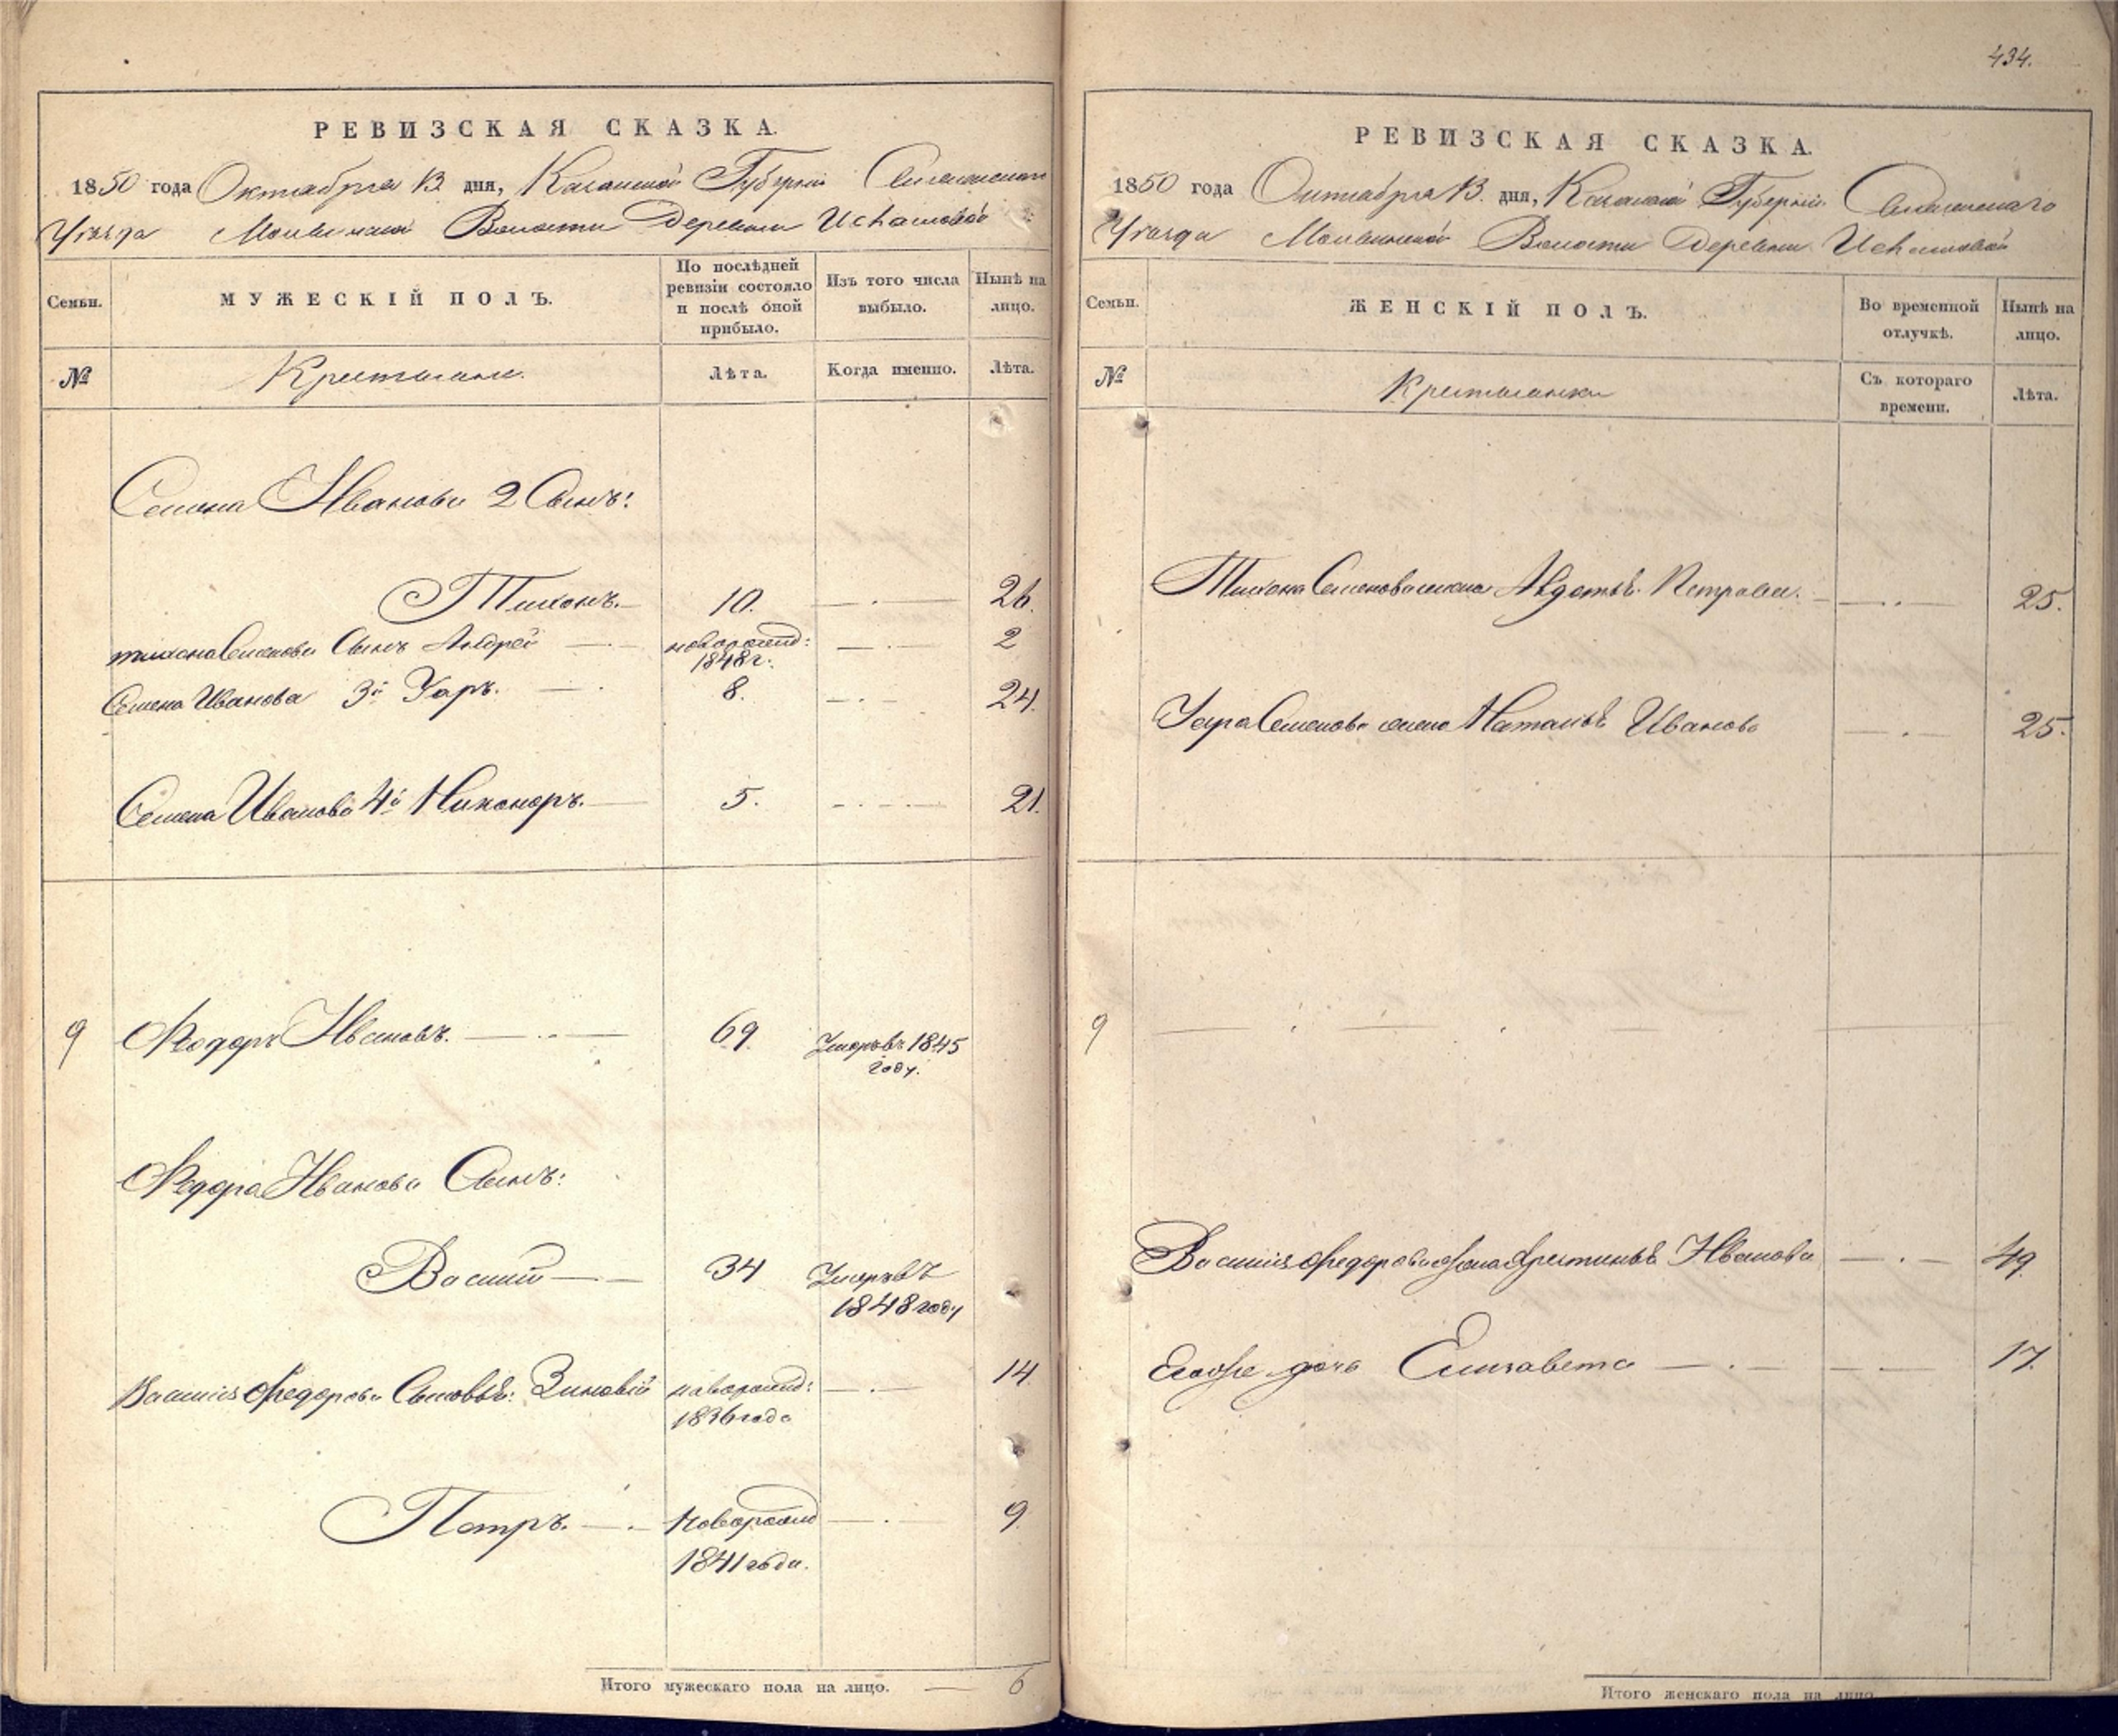 РЕВИЗСКАЯ СКАЗКА.
1850 года Октября 13. дня, Казанской Губернии
Уезда Волости Деревни
Семьи.
МУЖЕСКІЙ ПОЛЪ.
По послѣдней ревизіи состояло и послѣ оной прибыло.
Изъ того числа выбыло.
Нынѣ на лицо.
№
Крестьяне.
Лѣта.
Когда именно.
Лѣта.
Семена Иванова 2 Сынъ:
Тихонъ. 10. 26.
Тихона Семенова Сынъ Андрей новорожд: 1848 г. 2
Семена Иванова 3й Уаръ. 8. 24.
Семена Иванова 4й Никоноръ. 5. 21.
9 Федоръ Ивановъ. 69. Умеръ въ 1845 году.
Федора Иванова Сынъ:
Василий 34 Умеръ въ 1848 году
Василия Федорова Сыновья: Зиновій новорожд: 1836 года 14.
Петръ. Новорожд 1841 года. 9.
Итого мужескаго пола на лицо. 6
434.
РЕВИЗСКАЯ СКАЗКА.
1850 года Октября 13. дня, Казанской Губерніи
Уезда Волости Деревни
Семьи.
ЖЕНСКІЙ ПОЛЪ.
Во временной отлучкѣ.
Нынѣ на лицо.
№
Крестьянки
Съ котораго времени.
Лѣта.
Тихона Семенова жена Авдотья Петрова. 25.
Уара Семенова жена Наталья Иванова 25.
9
Василия Федорова жена Иванова 49.
дочь Елизавета 17.
Итого женскаго пола на лицо